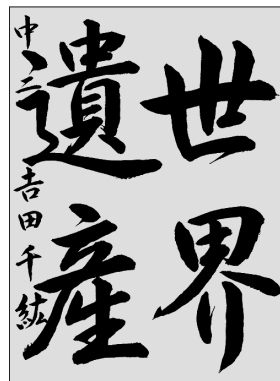 世界
遺産
中三 吉田千紘